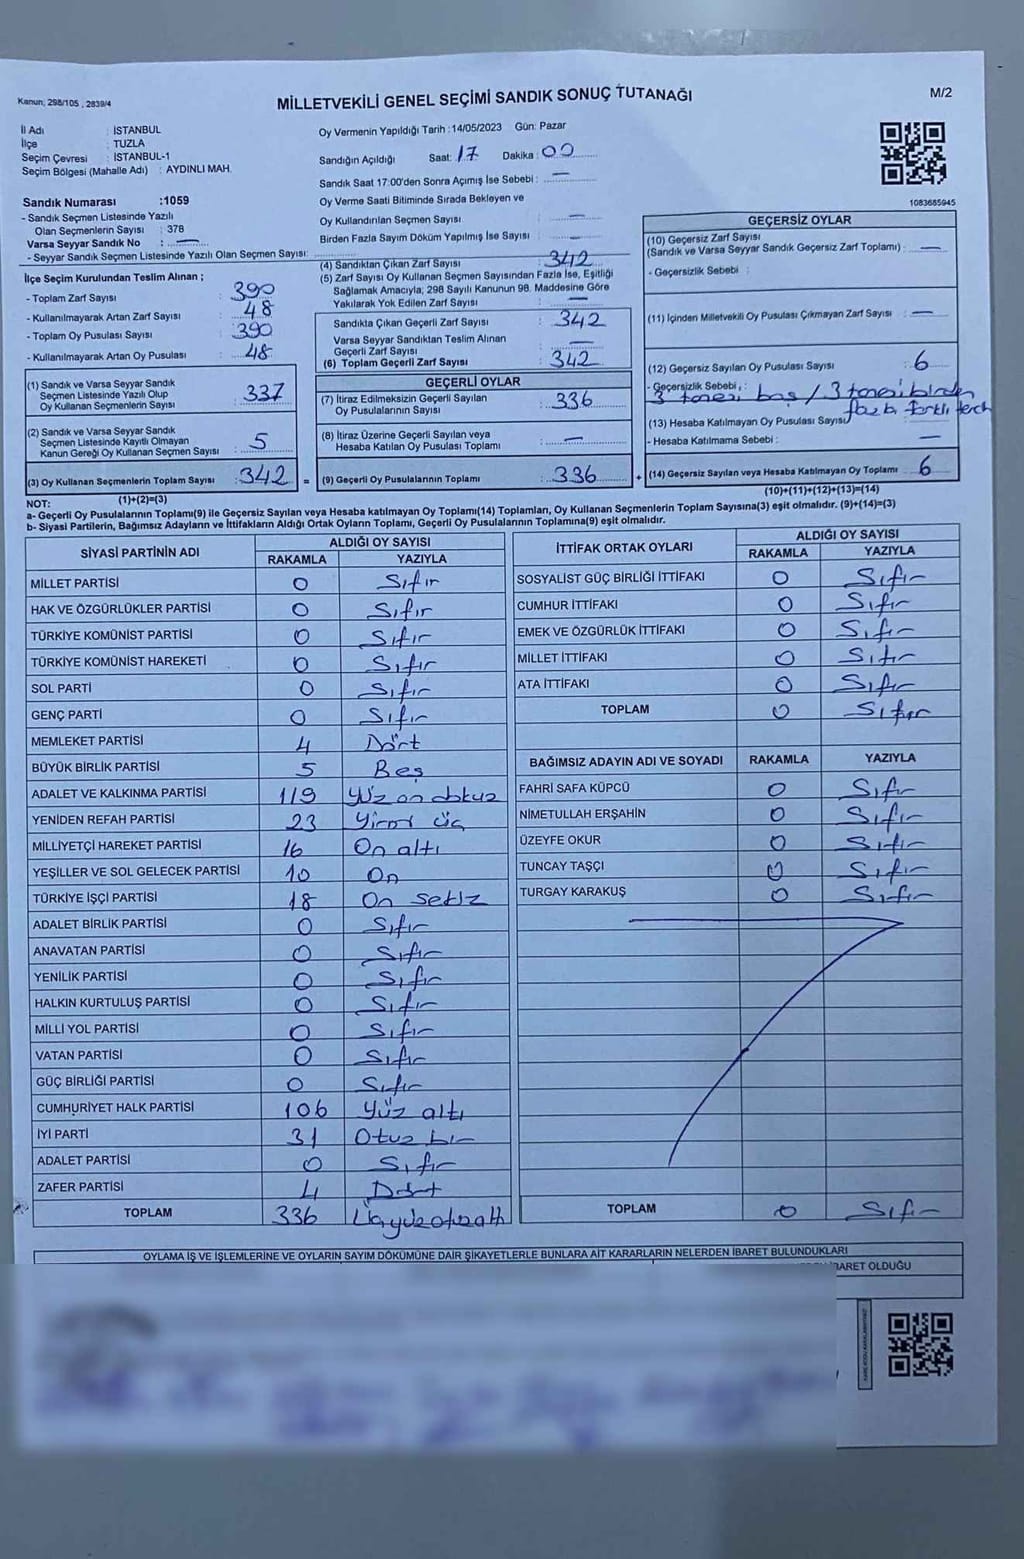 Kanun; 298/105 , 2839/4
MİLLETVEKİLİ GENEL SEÇİMİ SANDIK SONUÇ TUTANAĞI
M/2
İl Adı : İSTANBUL
İlçe : TUZLA
Seçim Çevresi : İSTANBUL-1
Seçim Bölgesi (Mahalle Adı) : AYDINLI MAH.
Sandık Numarası :1059
- Sandık Seçmen Listesinde Yazılı
Olan Seçmenlerin Sayısı : 378
Varsa Seyyar Sandık No : —
- Seyyar Sandık Seçmen Listesinde Yazılı Olan Seçmen Sayısı:
Oy Vermenin Yapıldığı Tarih :14/05/2023 Gün: Pazar
Sandığın Açıldığı Saat: 17 Dakika : 00
Sandık Saat 17:00'den Sonra Açımış İse Sebebi : —
Oy Verme Saati Bitiminde Sırada Bekleyen ve
Oy Kullandırılan Seçmen Sayısı : —
Birden Fazla Sayım Döküm Yapılmış İse Sayısı : —
1083685945
İlçe Seçim Kurulundan Teslim Alınan ;
- Toplam Zarf Sayısı : 390
- Kullanılmayarak Artan Zarf Sayısı : 48
- Toplam Oy Pusulası Sayısı : 390
- Kullanılmayarak Artan Oy Pusulası : 48
(1) Sandık ve Varsa Seyyar Sandık
Seçmen Listesinde Yazılı Olup
Oy Kullanan Seçmenlerin Sayısı : 337
(2) Sandık ve Varsa Seyyar Sandık
Seçmen Listesinde Kayıtlı Olmayan
Kanun Gereği Oy Kullanan Seçmen Sayısı : 5
(3) Oy Kullanan Seçmenlerin Toplam Sayısı : 342 =
(1)+(2)=(3)
(4) Sandıktan Çıkan Zarf Sayısı : 342
(5) Zarf Sayısı Oy Kullanan Seçmen Sayısından Fazla İse, Eşitliği
Sağlamak Amacıyla; 298 Sayılı Kanunun 98. Maddesine Göre
Yakılarak Yok Edilen Zarf Sayısı : —
Sandıkta Çıkan Geçerli Zarf Sayısı : 342
Varsa Seyyar Sandıktan Teslim Alınan
Geçerli Zarf Sayısı : —
(6) Toplam Geçerli Zarf Sayısı : 342
GEÇERLİ OYLAR
(7) İtiraz Edilmeksizin Geçerli Sayılan
Oy Pusulalarının Sayısı : 336
(8) İtiraz Üzerine Geçerli Sayılan veya
Hesaba Katılan Oy Pusulası Toplamı : —
(9) Geçerli Oy Pusulalarının Toplamı : 336 +
GEÇERSİZ OYLAR
(10) Geçersiz Zarf Sayısı
(Sandık ve Varsa Seyyar Sandık Geçersiz Zarf Toplamı) : —
- Geçersizlik Sebebi :
(11) İçinden Milletvekili Oy Pusulası Çıkmayan Zarf Sayısı : —
(12) Geçersiz Sayılan Oy Pusulası Sayısı : 6
- Geçersizlik Sebebi : 3 tanesi boş / 3 tanesi birden
fazla farklı terch
(13) Hesaba Katılmayan Oy Pusulası Sayısı
- Hesaba Katılmama Sebebi : —
(14) Geçersiz Sayılan veya Hesaba Katılmayan Oy Toplamı 6
(10)+(11)+(12)+(13)=(14)
NOT:
a- Geçerli Oy Pusulalarının Toplamı(9) ile Geçersiz Sayılan veya Hesaba katılmayan Oy Toplamı(14) Toplamları, Oy Kullanan Seçmenlerin Toplam Sayısına(3) eşit olmalıdır. (9)+(14)=(3)
b- Siyasi Partilerin, Bağımsız Adayların ve İttifakların Aldığı Ortak Oyların Toplamı, Geçerli Oy Pusulalarının Toplamına(9) eşit olmalıdır.
SİYASİ PARTİNİN ADI
ALDIĞI OY SAYISI
RAKAMLA YAZIYLA
MİLLET PARTİSİ 0 Sıfır
HAK VE ÖZGÜRLÜKLER PARTİSİ 0 Sıfır
TÜRKİYE KOMÜNİST PARTİSİ 0 Sıfır
TÜRKİYE KOMÜNİST HAREKETİ 0 Sıfır
SOL PARTİ 0 Sıfır
GENÇ PARTİ 0 Sıfır
MEMLEKET PARTİSİ 4 Dört
BÜYÜK BİRLİK PARTİSİ 5 Beş
ADALET VE KALKINMA PARTİSİ 119 Yüz on dokuz
YENİDEN REFAH PARTİSİ 23 Yirmi üç
MİLLİYETÇİ HAREKET PARTİSİ 16 On altı
YEŞİLLER VE SOL GELECEK PARTİSİ 10 On
TÜRKİYE İŞÇİ PARTİSİ 18 On sekiz
ADALET BİRLİK PARTİSİ 0 Sıfır
ANAVATAN PARTİSİ 0 Sıfır
YENİLİK PARTİSİ 0 Sıfır
HALKIN KURTULUŞ PARTİSİ 0 Sıfır
MİLLİ YOL PARTİSİ 0 Sıfır
VATAN PARTİSİ 0 Sıfır
GÜÇ BİRLİĞİ PARTİSİ 0 Sıfır
CUMHURİYET HALK PARTİSİ 106 Yüz altı
İYİ PARTİ 31 Otuz bir
ADALET PARTİSİ 0 Sıfır
ZAFER PARTİSİ 4 Dört
TOPLAM 336 Üçyüzotuzaltı
İTTİFAK ORTAK OYLARI
ALDIĞI OY SAYISI
RAKAMLA YAZIYLA
SOSYALİST GÜÇ BİRLİĞİ İTTİFAKI 0 Sıfır
CUMHUR İTTİFAKI 0 Sıfır
EMEK VE ÖZGÜRLÜK İTTİFAKI 0 Sıfır
MİLLET İTTİFAKI 0 Sıfır
ATA İTTİFAKI 0 Sıfır
TOPLAM 0 Sıfır
BAĞIMSIZ ADAYIN ADI VE SOYADI RAKAMLA YAZIYLA
FAHRİ SAFA KÜPCÜ 0 Sıfır
NİMETULLAH ERŞAHİN 0 Sıfır
ÜZEYFE OKUR 0 Sıfır
TUNCAY TAŞÇI 0 Sıfır
TURGAY KARAKUŞ 0 Sıfır
TOPLAM 0 Sıfır
OYLAMA İŞ VE İŞLEMLERİNE VE OYLARIN SAYIM DÖKÜMÜNE DAİR ŞİKAYETLERLE BUNLARA AİT KARARLARIN NELERDEN İBARET BULUNDUKLARI
İBARET OLDUĞU